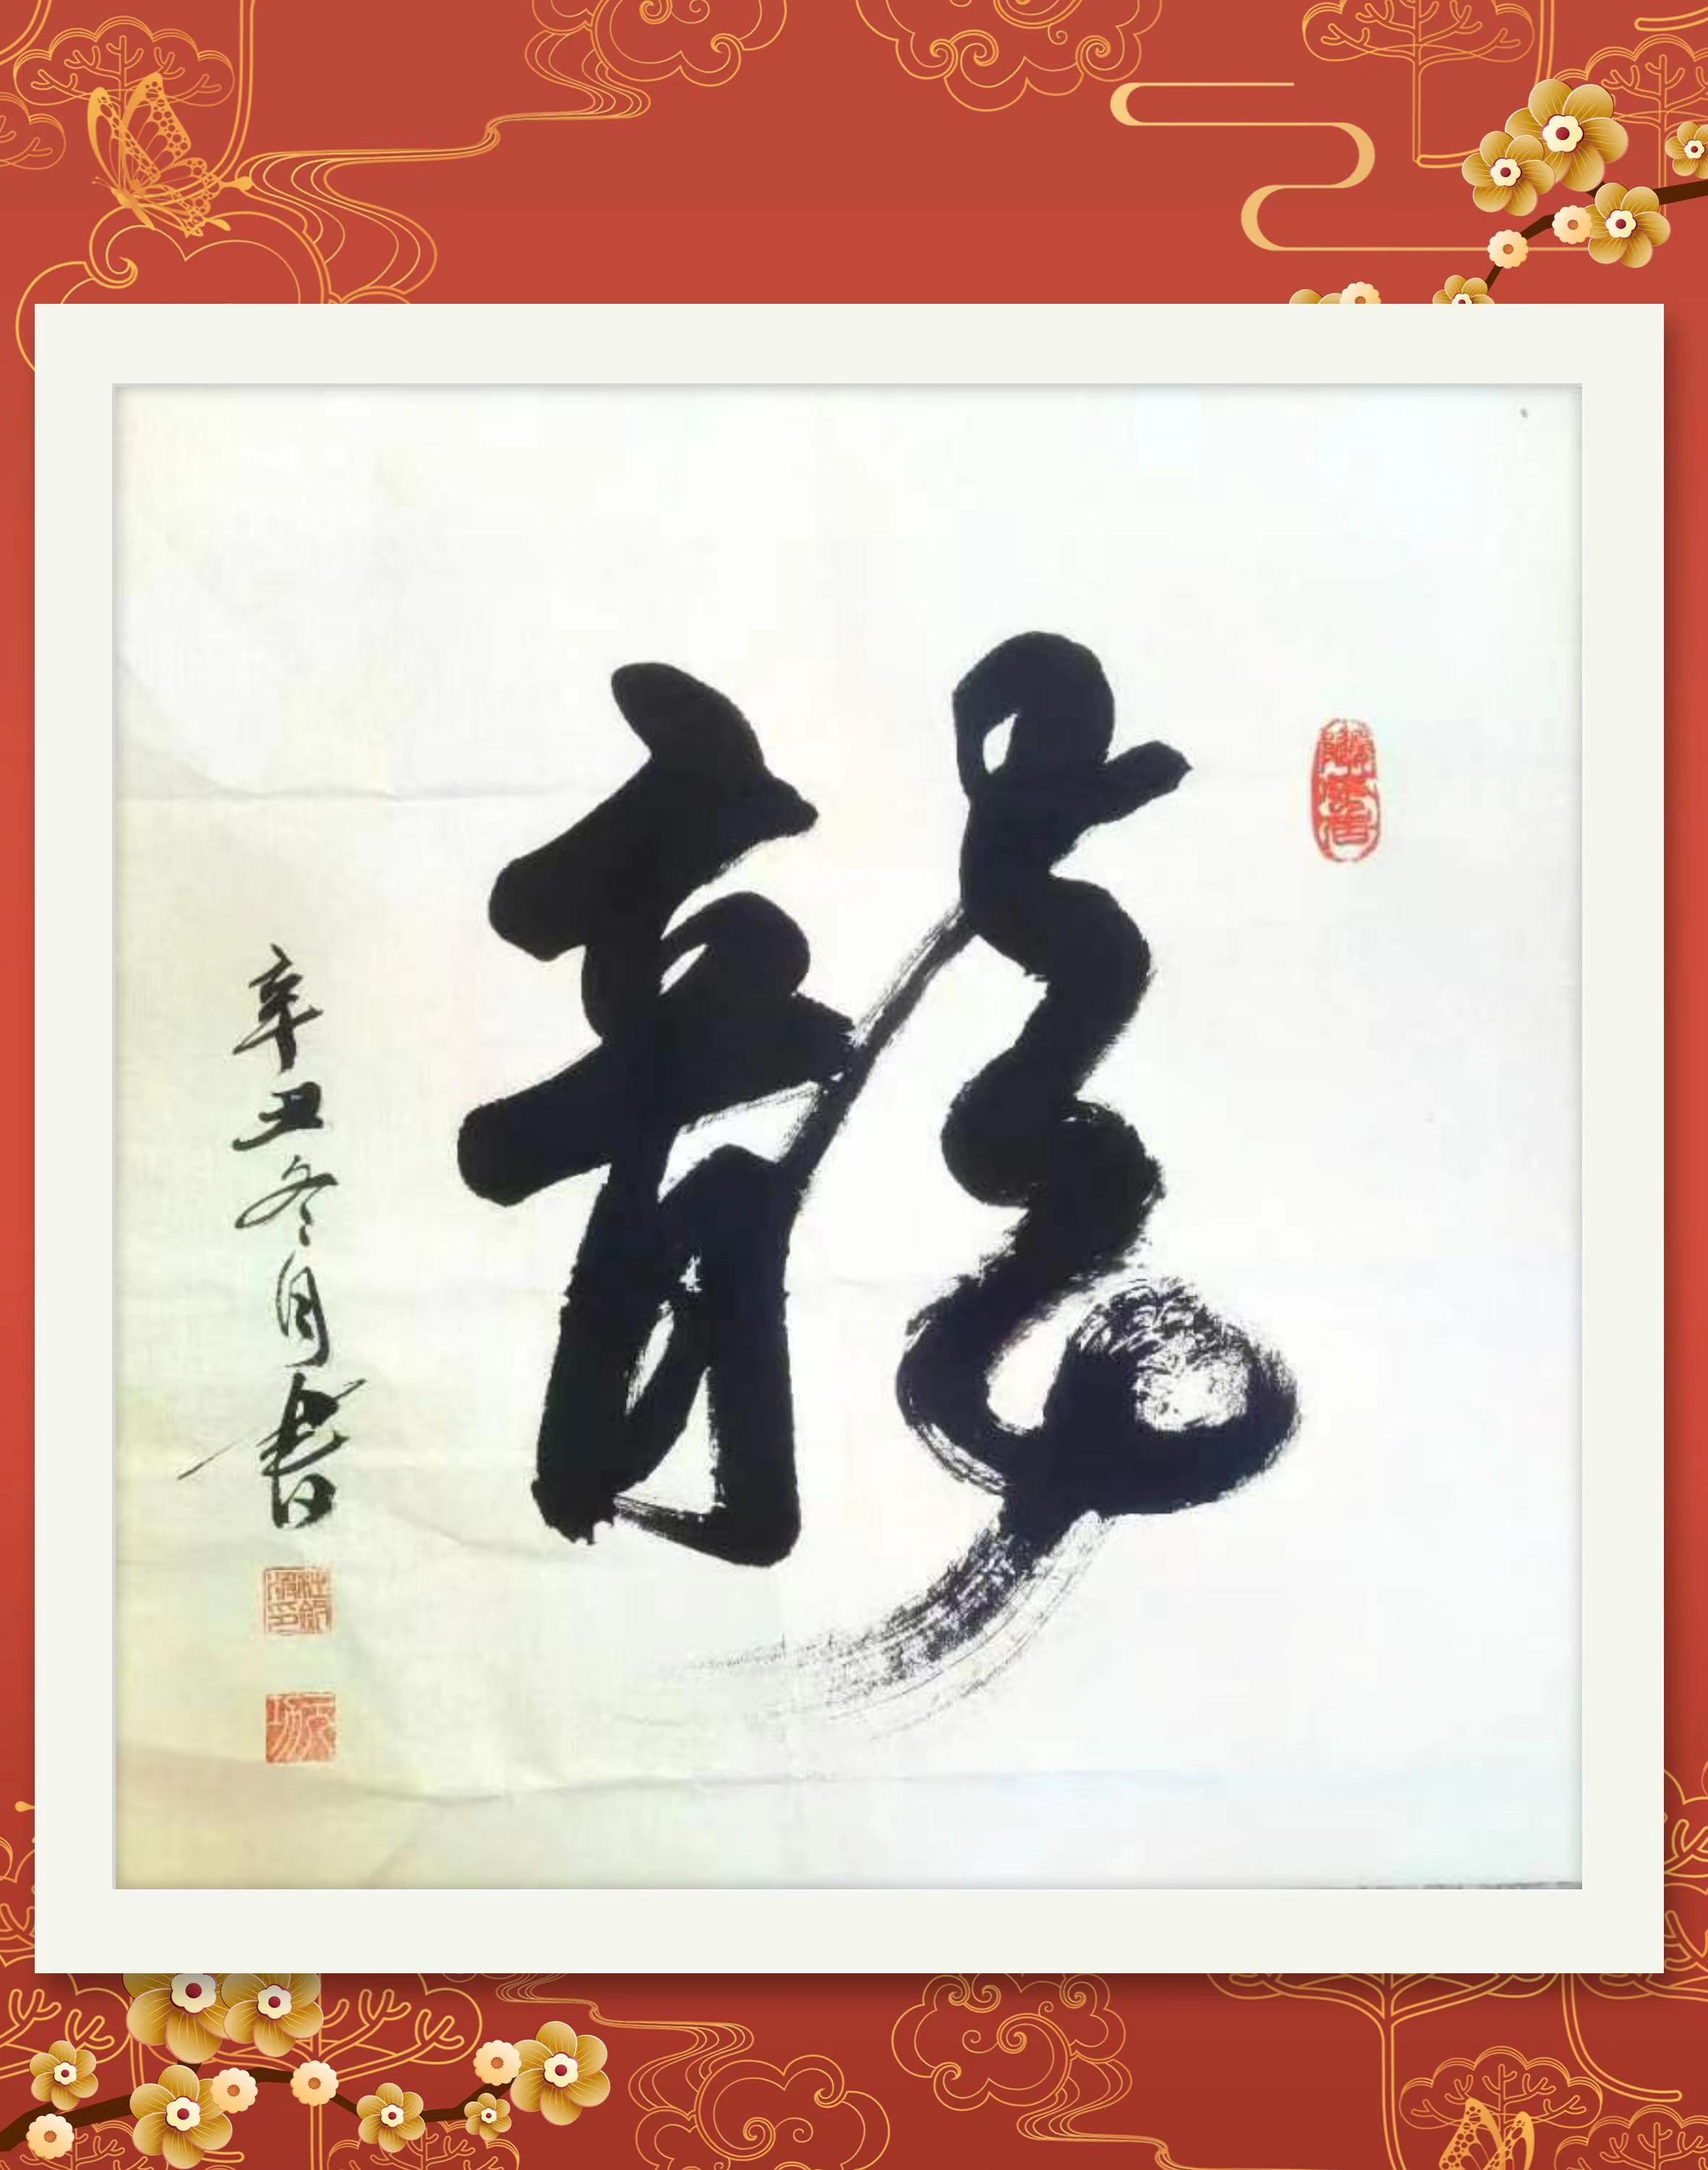 龍
辛丑冬月書